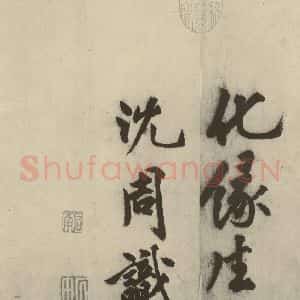 化緣生
沈周識
Shufawang.CN